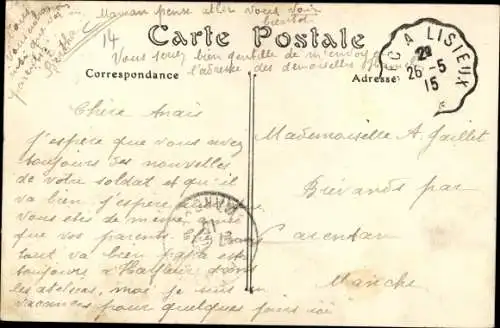 Maman pense aller vous voir
bientôt
14
Carte Postale
Vous serez bien gentille de m'envoyer
l'adresse des demoiselles
Correspondance
Adresse
A LISIEUX
2º
26-5
15
Chère Anaïs
J'espère que vous avez
toujours des nouvelles
de votre soldat et qu'il
va bien j'espère
vous êtes de même ainsi
que vos parents
tout va bien papa est
toujours à Harfleur dans
les ateliers, moi je suis en
vacances pour quelques jours ici
Mademoiselle A. Jaillet
Brévands par
Carentan
Manche